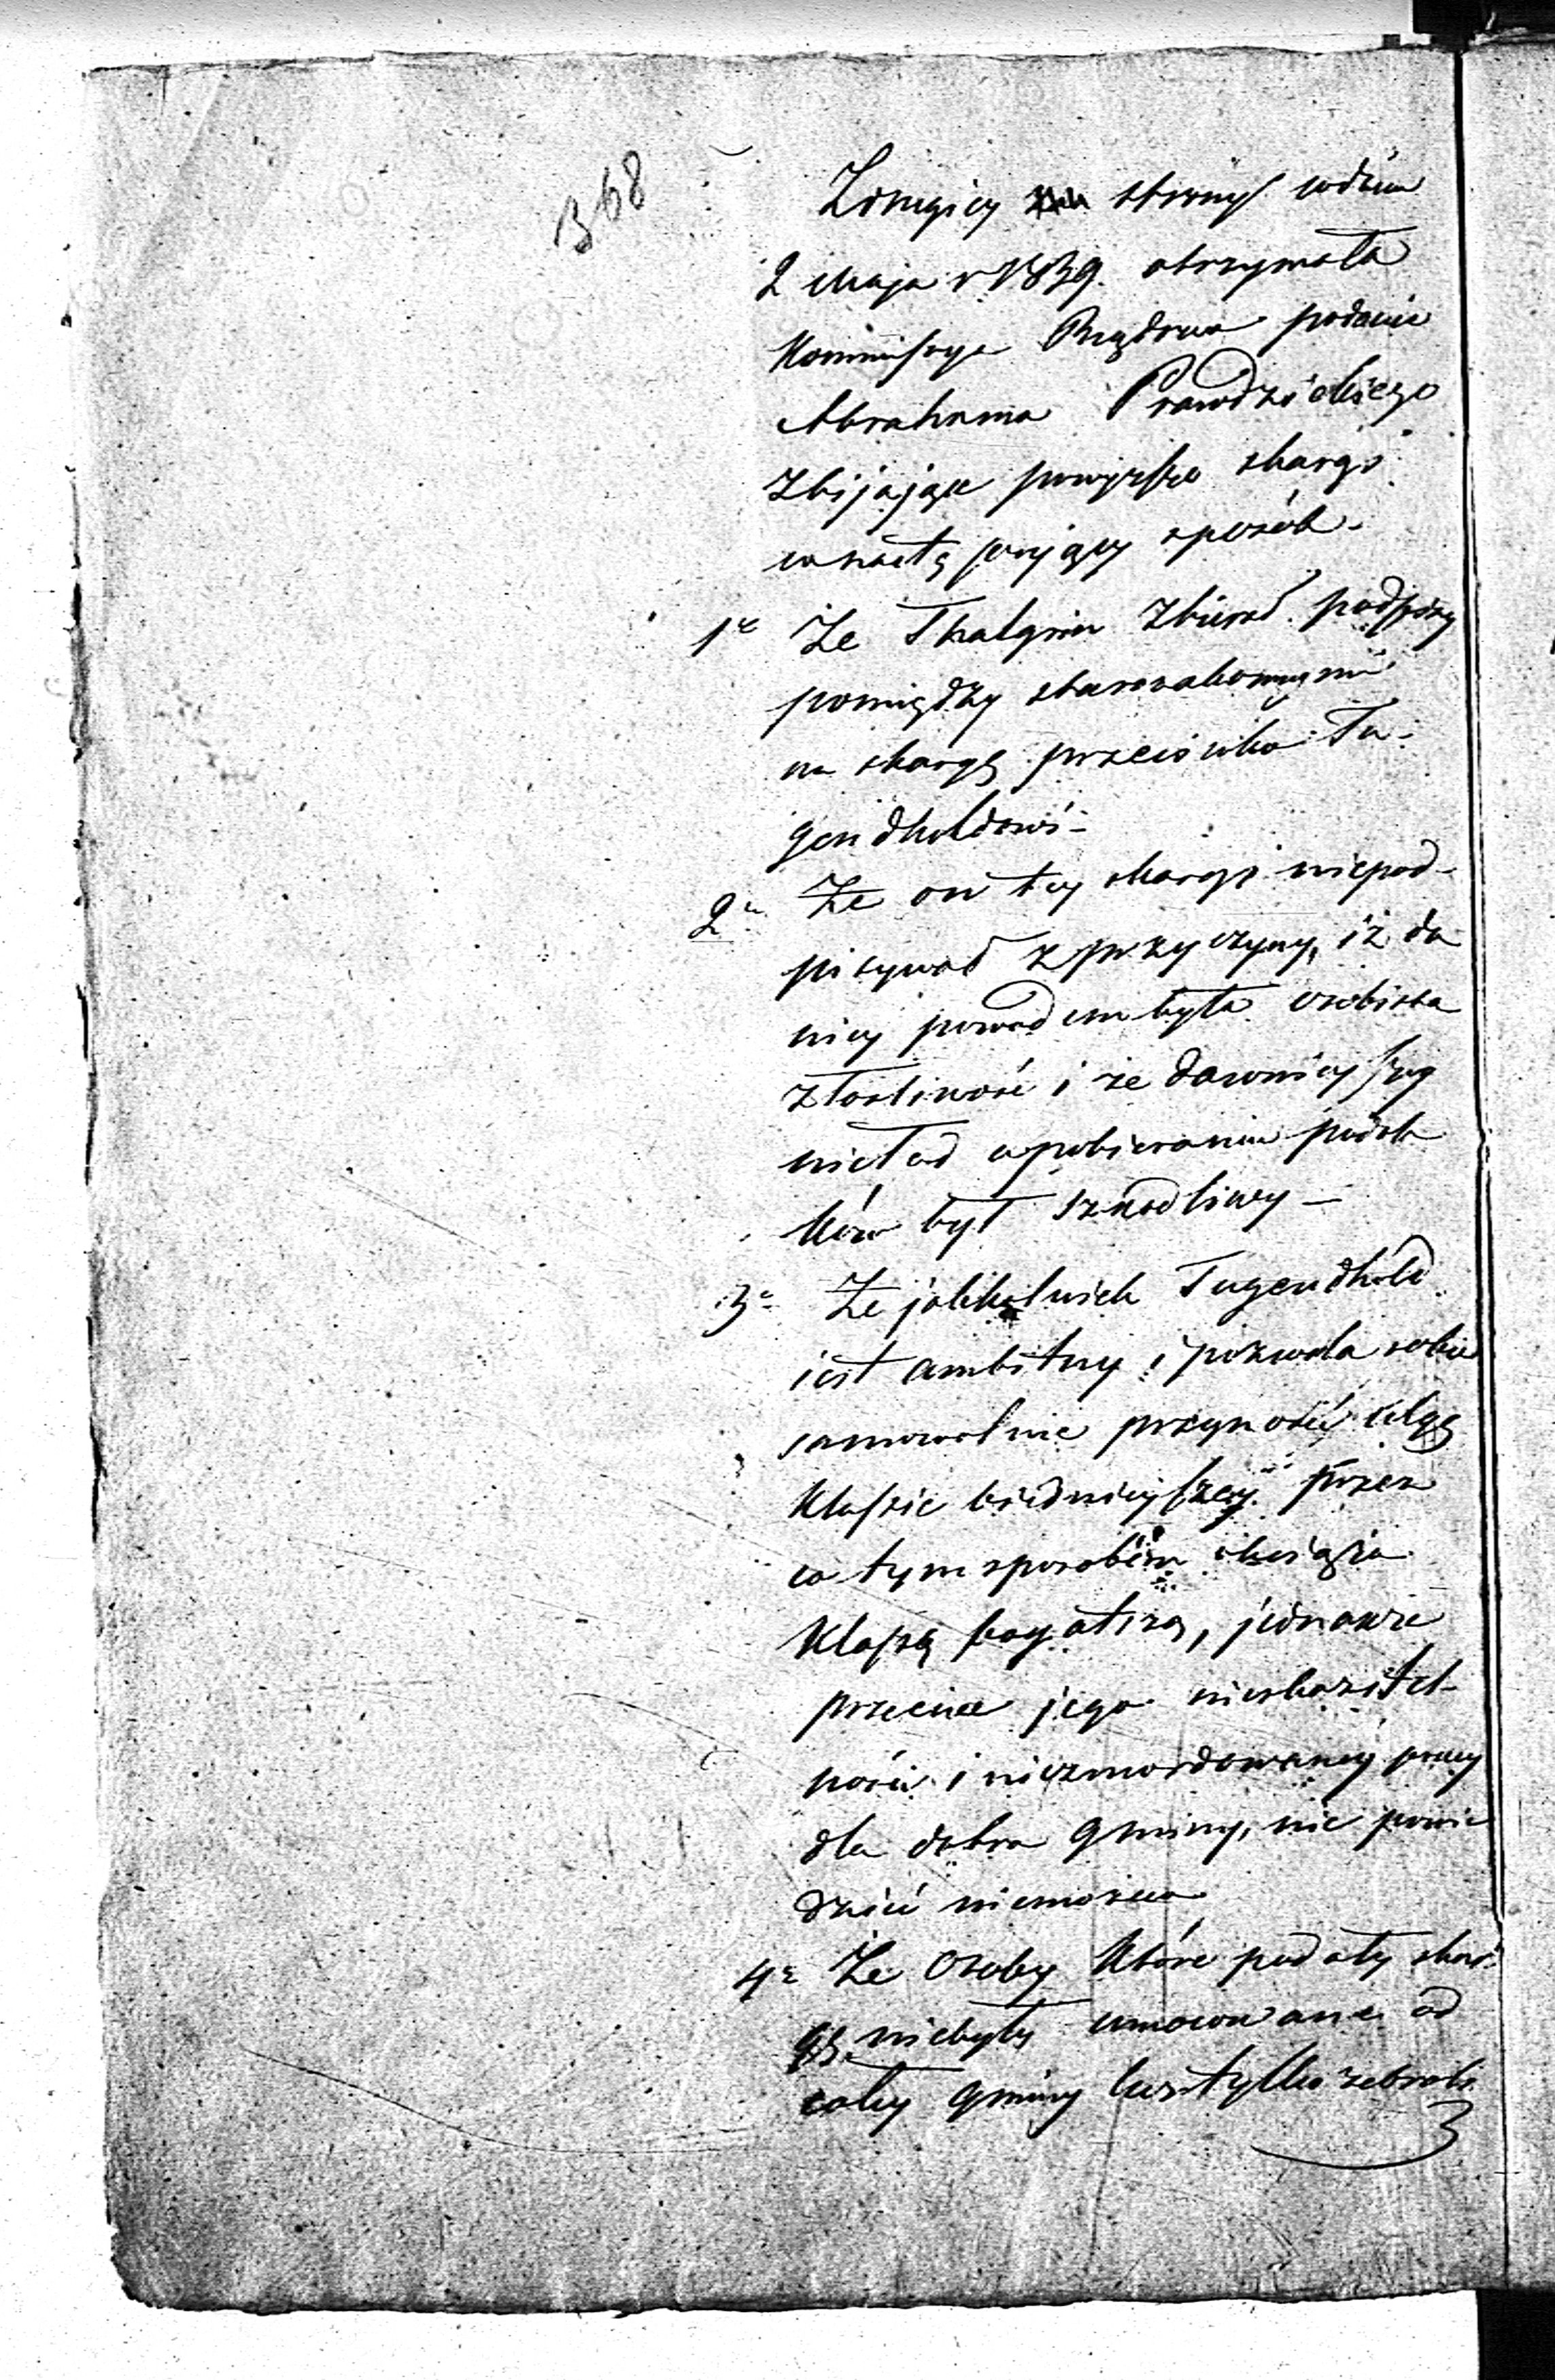 368
Zdrugiey strony wdniu
2 Maja r 1839. otrzymała
Kommissya Rządowa podanie
Abrahama Prawdzickiego
zbijające powyższe skargi
wnastępujący sposób -
1e Że Thalgrün zbierał podpisy
pomiędzy starozakonnymi
na skargę przeciwko Tu-
gendholdowi -
2e Że on tey skargi niepod-
pisywał z przyczyny, iż do
niey powodem była osobista
złośliwość i że dawnieyszy
nieład w pobieraniu podat
ków był szkodliwy -
3e Że jakkolwiek Tugendhold
iest ambitny i pozwala sobie
samowolnie przynosić ulgę
Klassie biednieyszey przez
co tym sposobem obciąża
Klassę bogatszą, jednakże
przeciw jego nieskazitel-
ności i niezmordowaney pracy
dla dobra Gminy, nic powie
dzieć niemożna
4e Że osoby które podały skar-
gę, niebyły umocowane od
całey Gminy lecz tylko zebrali